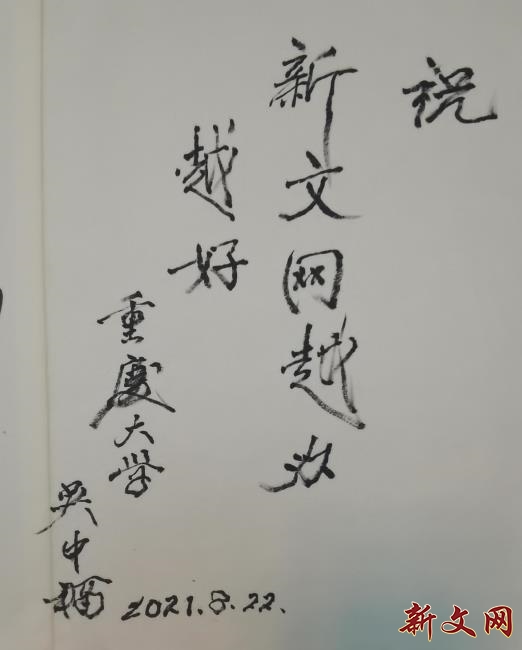 祝
新文网越办
越好
重庆大学
吴中福
2021.8.22.
新文网